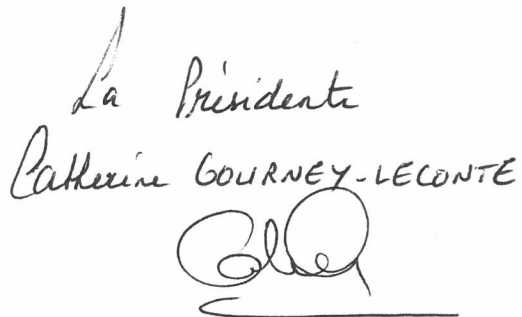 La Présidente
Catherine GOURNEY-LECONTE